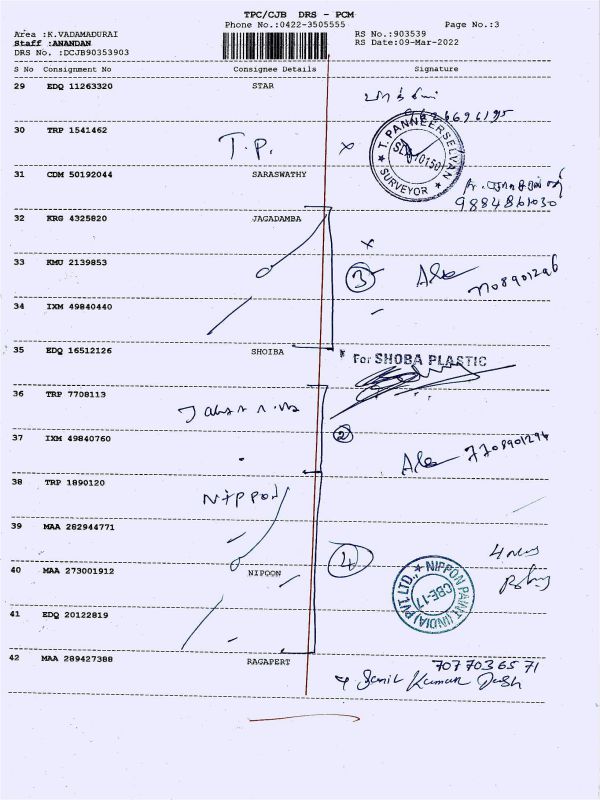 TPC/CJB DRS - PCM
Phone No.:0422-3505555 Page No.:3
Area :K.VADAMADURAI RS No.:903539
Staff :ANANDAN RS Date:09-Mar-2022
DRS No. :DCJB90353903
S No Consignment No Consignee Details Signature
29 EDQ 11263320 STAR
9626696195
30 TRP 1541462
T.P. x
T. PANNEERSELVAN
SURVEYOR
31 CDM 50192044 SARASWATHY
9884861030
32 KRG 4325820 JAGADAMBA
x
33 KMU 2139853
3
34 IXM 49840440
35 EDQ 16512126 SHOIBA
For SHOBA PLASTIC
36 TRP 7708113
37 IXM 49840760 2
7708901294
38 TRP 1890120
Nippon
39 MAA 282944771
40 MAA 273001912 NIPOON 4
NIPPON PAINT (INDIA) PVT. LTD.,
CBE-17
41 EDQ 20122819
42 MAA 289427388 RAGAPERT
7077036571
Sanil Kumar Dash